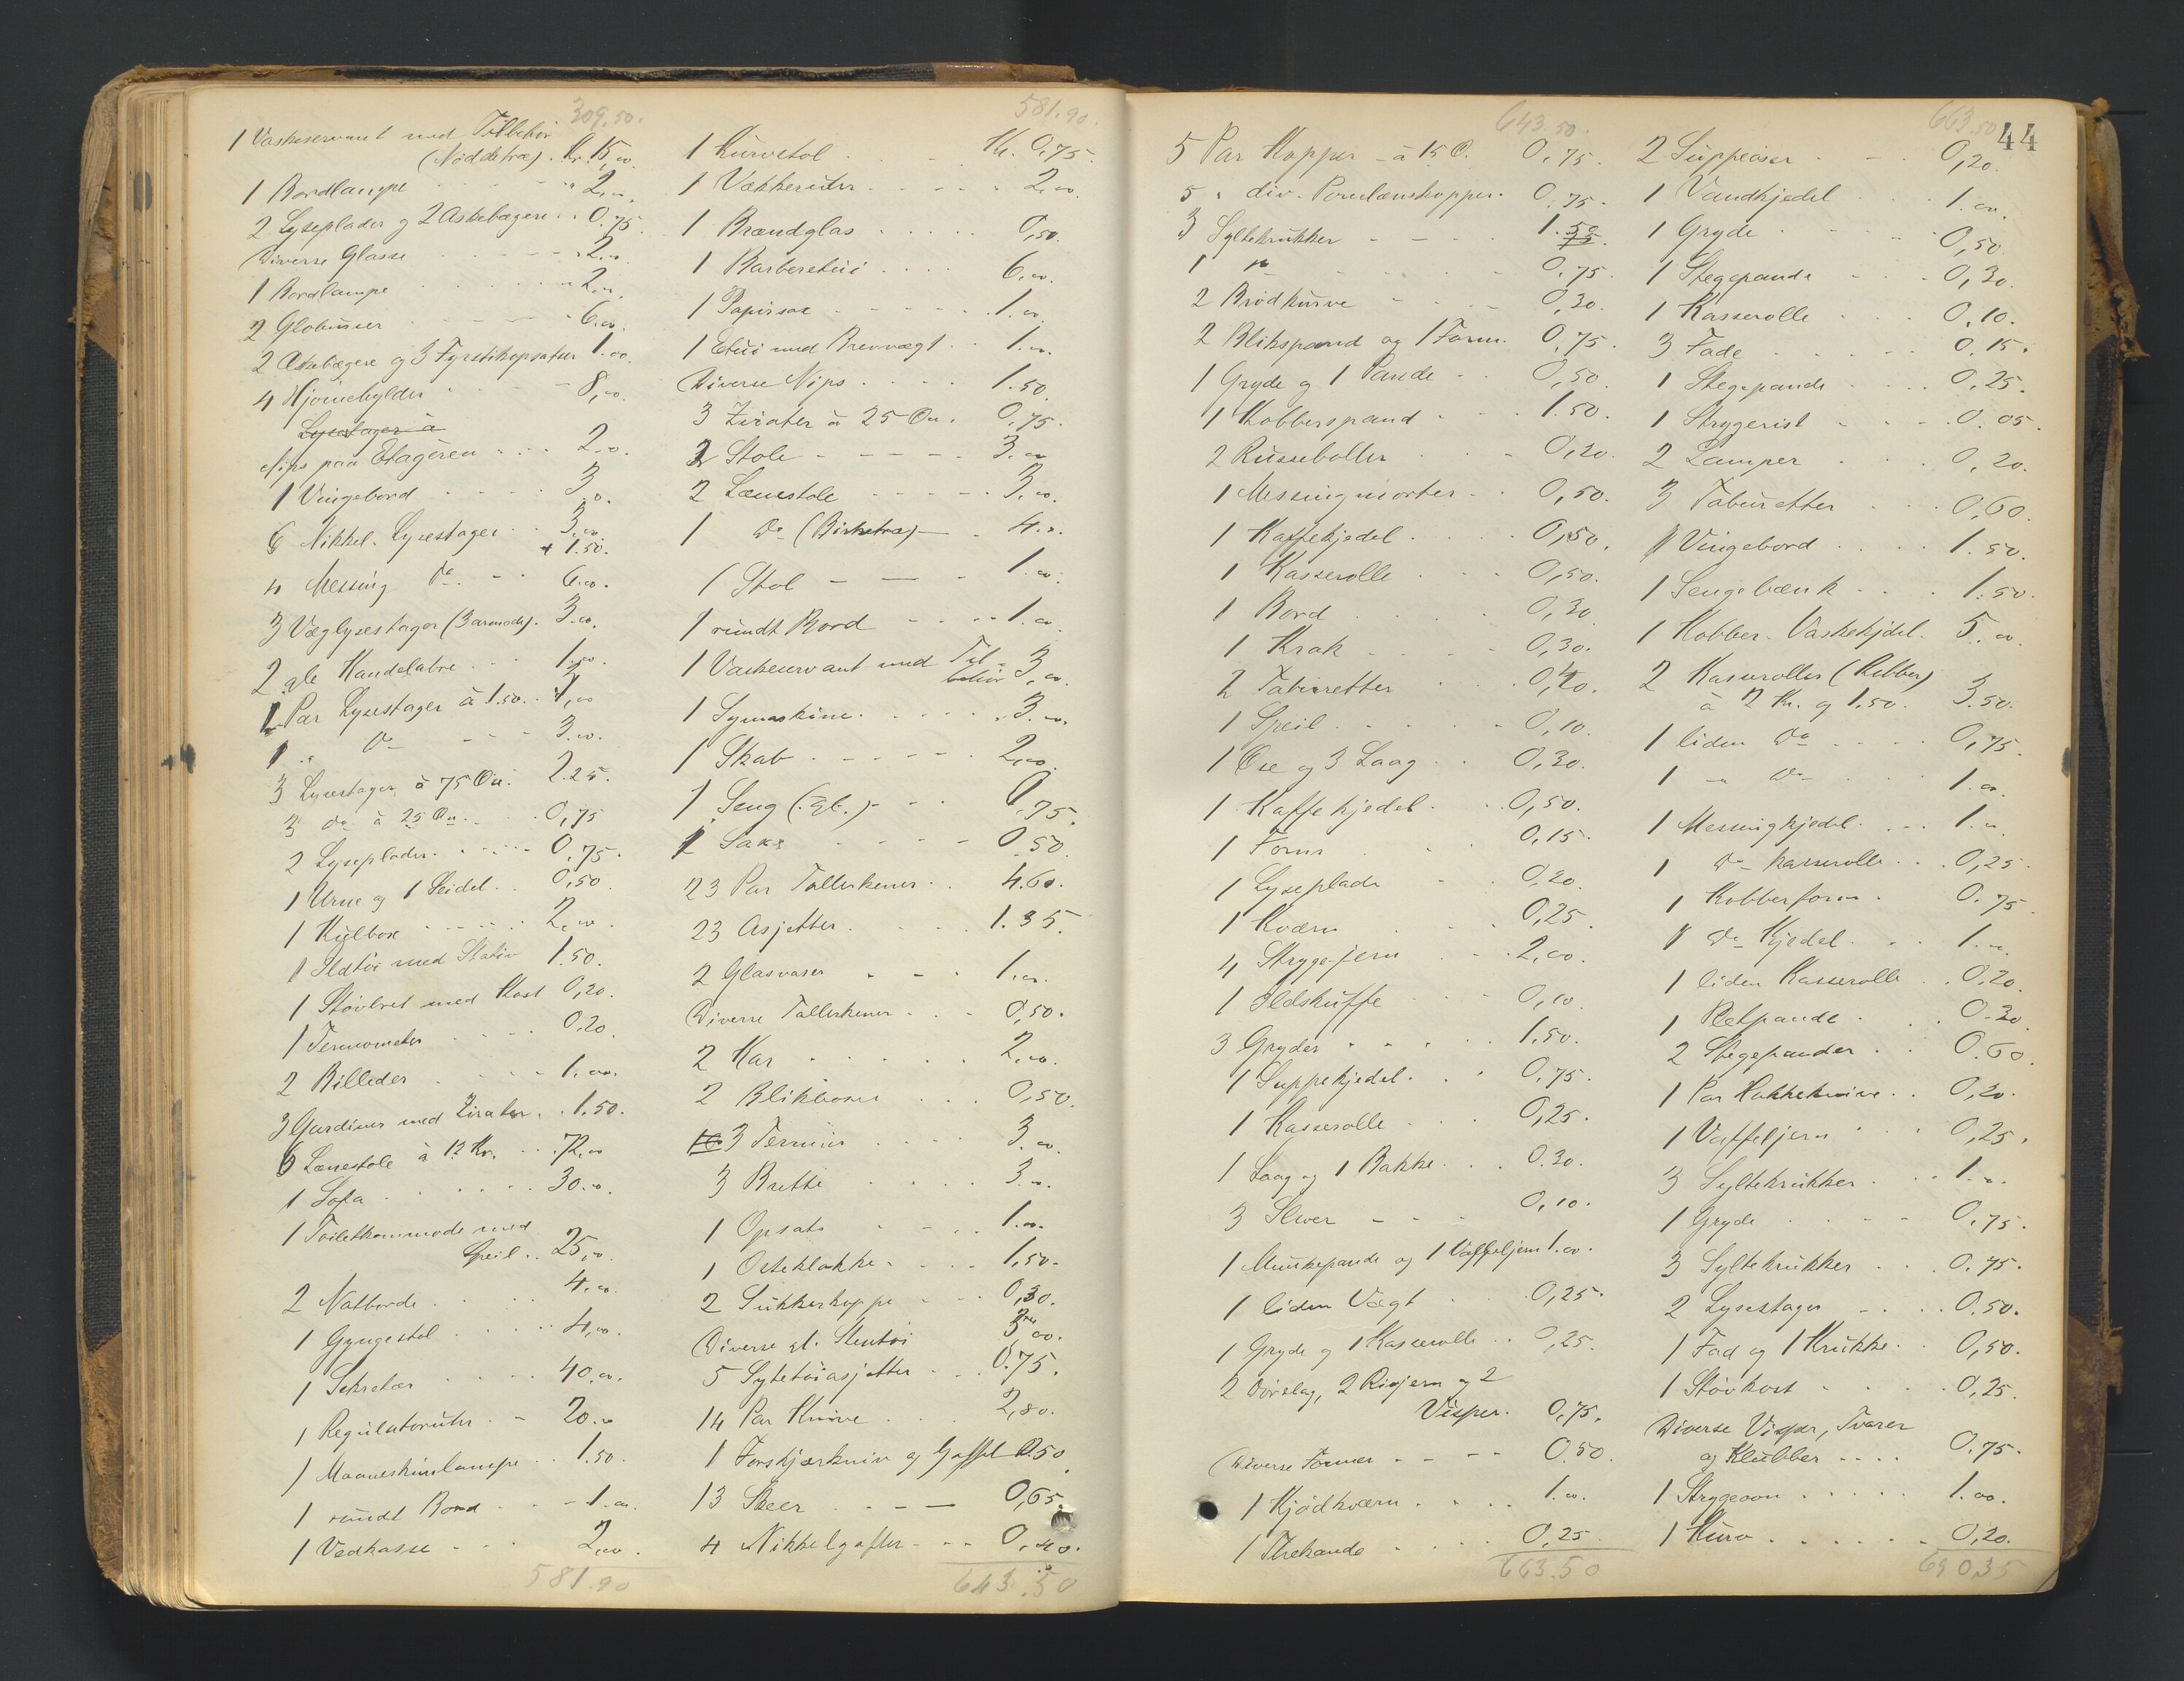 309,50.
1 Vaskeservant med Tilbehör
(Nöddetræ). Kr. 15,00
1 Bordlampe 2,00
2 Lyseplader og 2 Askebægere 0.75
Diverse Glasse 2.00
1 Bordlampe 2.00
2 Globusser 6.00
2 Askebægere og 3 Fyrstikopsatser 1.00
4 Hjörnehylder 8,00
Lysestager à
Nips paa Etagèren 2.00
1 Vingebord 3.00
6 Nikkel. Lysestager 3,00
+ 1.50.
4 Messing do. 6.00
3 Væglysestager (3 armede). 3.00
2 gle Kandelabre 1.00
1 Par Lysestager à 1.50. 1,00
1 " do 3.00
3 Lysestager à 75 Öre. 2.25.
3 do à 25 Öre 0,75
2 Lyseplader 0,75.
1 Urne og 1 Seidel 0,50
1 Kulbox 2.00
1 Ildtöi med Stativ 1.50.
1 Stövbret med Kost 0,20.
1 Termometer 0.20
2 Billeder 1.00
3 Gardiner med Zirater 1.50.
6 Lænestole à 12 Kr. 72,00
1 Sofa 30.00
1 Toiletkommode med
Speil 25,00
2 Natborde 4.00
1 Gyngestol 4,00
1 Sekretær 40.00
1 Regulatoruhr 20.00
1 Maaneskinslampe 1.50.
1 rundt Bord 1.00
1 Vedkasse 2,00
581.90
581.90.
1 Kurvstol Kr. 0,75.
1 Vækkeruhr 2.00
1 Brændglas 0,50.
1 Barberetui 6.00
1 Papirsax 1.00
1 Etui med Brevvægt 1.00
Diverse Nips 1.50
3 Zirater à 25 Öre. 0.75.
2 Stole 3.00
2 Lænestole 3.00
1 do (Birketræ) 4.00
1 Stol 1.00
1 rundt Bord 1.00
1 Vaskeservant med Til-
behör 3,00
1 Symaskine 3.00
1 Skab 2,00
1 Seng (gl.) 0.75.
1 Saks 0.50
23 Par Tallerkener 4.60.
23 Asjetter 1.35.
2 Glasvaser 1.00
Diverse Tallerkener 0,50.
2 Kar 2.00
2 Blikboser 0,50.
3 Terriner 3.00
3 Brette 3.00
1 Opsats 1.00
1 Osteklokke 1,50.
2 Sukkerkoppe 0,30.
Diverse gl. Stentöi 3,00
5 Syltetöiasjetter 0.75.
14 Par Knive 2,80.
1 Forskjærkniv og Gaffel 0.50
13 Skeer 0,65.
4 Nikkelgafler 0,40.
643.50
643.50.
5 Par Kopper à 15 Ö. 0,75.
5 " div. Porcelænskopper. 0,75.
3 Syltekrukker 1.50
75.
1 do 0.75.
2 Brödkurve 0,30.
2 Blikspand og 1 Form. 0,75.
1 Gryde og 1 Pande 0,50
1 Kobberspand 1.50.
2 Russeboller 0,20.
1 Messingmorter 0,50.
1 Kaffekjedel 0,50.
1 Kasserolle 0,50.
1 Bord 0,30
1 Krak 0,30.
2 Taburetter 0,40.
1 Speil 0,10.
1 Öse og 3 Laag 0,30.
1 Kaffekjedel 0,50.
1 Form 0,15.
1 Lyseplade 0,20.
1 Kværn 0,25.
4 Strygejern 2,00.
1 Ildskuffe 0,10.
3 Gryder 1,50.
1 Suppekjedel 0,75.
1 Kasserolle 0,25.
1 Laag og 1 Bakke 0.30.
3 Slever 0,10.
1 Munkepande og 1 Vaffeljern 1.00.
1 liden Vægt 0,25.
1 Gryde og 1 Kasserolle 0,25.
2 Dörslag, 2 Rivjern og 2
Visper. 0,75.
Diverse Former 0.50.
1 Kjödkværn 1.00
1 Thekande 0,25.
663.50
663.50
44
2 Suppeöser 0,20.
1 Vandkjedel 1.00
1 Gryde 0,50
1 Stegepande 0,30.
1 Kasserolle 0,10.
3 Fade 0.15.
1 Stegepande 0,25.
1 Strygerist 0.05.
2 Lamper 0,20.
3 Taburetter 0,60.
1 Vingebord 1.50.
1 Sengebænk 1.50.
1 Kobber-Vaskekjdel. 5.00
2 Kasseroller (Kobber)
à 2 Kr. og 1.50. 3.50.
1 liden do 0,75.
1 " do 1.00
1 Messingkjedel 1.00
1 do kasserolle 0,25.
1 Kobberform 0.75
1 do Kjedel 1.00
1 liden Kasserolle 0,20.
1 Pletpande 0.30
2 Stegepander 0.60
1 Par Hakkeknive 0,20.
1 Vaffeljern 0,25.
3 Syltekrukker 1.00
1 Gryde 0,75.
3 Syltekrukker 0.75.
2 Lysestager 0.50.
1 Fad og 1 Krukke 0,50.
1 Stövkost 0,25.
Diverse Visper, Tvarer
og Klubber 0.75.
1 Strygeovn 1.00.
1 Kurv 0,20.
690,35